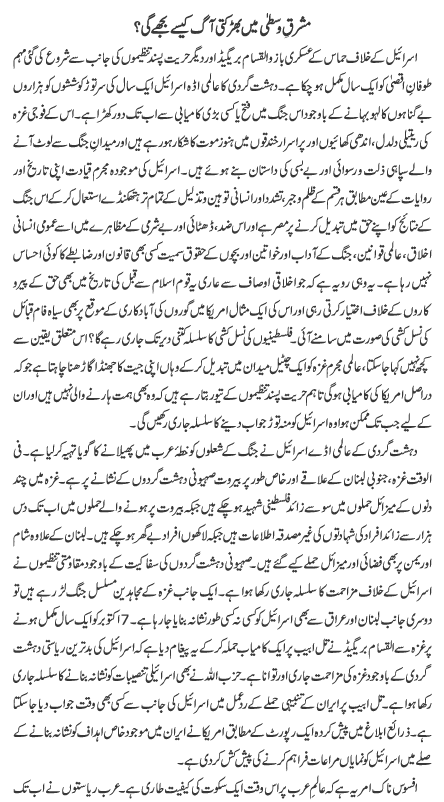 مشرقِ وسطیٰ میں بھڑکتی آگ کیسے بجھے گی؟
اسرائیل کے خلاف حماس کے عسکری بازو القسام بریگیڈ اور دیگر حریت پسند تنظیموں کی جانب سے شروع کی گئی مہم
طوفانِ اقصیٰ کو ایک سال مکمل ہو چکا ہے۔ دہشت گردی کا عالمی اڈہ اسرائیل ایک سال کی سر توڑ کوششوں کو ہزاروں
بے گناہوں کا لہو بہانے کے باوجود اس جنگ میں فتح یا کسی بڑی کامیابی سے اب تک دور کھڑا ہے۔ اس کے فوجی غزہ
کی ریتیلی دلدل، اندھی کھائیوں اور پر اسرار خندقوں میں ہنوز موت کا شکار ہو رہے ہیں اور میدانِ جنگ سے لوٹ آنے
والے سپاہی ذلت و رسوائی اور بے بسی کی داستان بنے ہوئے ہیں۔ اسرائیل کی موجودہ مجرم قیادت اپنی تاریخ اور
روایات کے عین مطابق ہر قسم کے ظلم و جبر، تشدد اور انسانی توہین و تذلیل کے تمام تر ہتھکنڈے استعمال کر کے اس جنگ
کے نتائج کو اپنے حق میں تبدیل کرنے پر مصر ہے اور اس ضد، ڈھٹائی اور بے شرمی کے مظاہرے میں اسے عمومی انسانی
اخلاق، عالمی قوانین، جنگ کے آداب اور خواتین اور بچوں کے حقوق سمیت کسی بھی قانون اور ضابطے کا کوئی احساس
نہیں ہے۔ یہ وہی رویہ ہے کہ جو اخلاقی اوصاف سے عاری یہ قوم اسلام سے قبل کی تاریخ میں بھی حق کے پیرو
کاروں کے خلاف اختیار کرتی رہی اور اس کی ایک مثال امریکا میں گوروں کی آباد کاری کے موقع پر بھی سیاہ فام قبائل
کی نسل کشی کی صورت میں سامنے آئی۔ فلسطینیوں کی نسل کشی کا سلسلہ کتنی دیر تک جاری رہے گا؟ اس متعلق یقین سے
کچھ نہیں کہا جا سکتا، عالمی مجرم غزہ کو ایک چٹیل میدان میں تبدیل کر کے وہاں اپنی جیت کا جھنڈا گاڑھنا چاہتا ہے جو کہ
در اصل امریکا کی کامیابی ہوگی تاہم حریت پسند تنظیموں کے تیور بتا رہے ہیں کہ وہ بھی ہمت ہارنے والی نہیں ہیں اور ان
کے لیے جب تک ممکن ہوا وہ اسرائیل کو منہ توڑ جواب دینے کا سلسلہ جاری رکھیں گی۔
دہشت گردی کے عالمی اڈے اسرائیل نے جنگ کے شعلوں کو خطۂ عرب میں پھیلانے کا گویا تہیہ کر لیا ہے۔ فی
الوقت غزہ، جنوبی لبنان کے علاقے اور خاص طور پر بیروت صہیونی دہشت گردوں کے نشانے پر ہے۔ غزہ میں چند
دنوں کے میزائل حملوں میں سو سے زائد فلسطینی شہید ہو چکے ہیں جبکہ بیروت پر ہونے والے حملوں میں اب تک دس
ہزار سے زائد افراد کی شہادتوں کی غیر مصدقہ اطلاعات ہیں جبکہ لاکھوں افراد بے گھر ہو چکے ہیں۔ لبنان کے علاوہ شام
اور یمن پر بھی فضائی اور میزائل حملے کیے گئے ہیں۔ صہیونی دہشت گردوں کی سفاکیت کے باوجود مقاومتی تنظیموں نے
اسرائیل کے خلاف مزاحمت کا سلسلہ جاری رکھا ہوا ہے۔ ایک جانب غزہ کے مجاہدین مسلسل جنگ لڑ رہے ہیں تو
دوسری جانب لبنان اور عراق سے بھی اسرائیل کو کسی نہ کسی طور نشانہ بنایا جا رہا ہے۔ 7 اکتوبر کو ایک سال مکمل ہونے
پر غزہ سے القسام بریگیڈ نے تل ابیب پر ایک کامیاب حملہ کر کے یہ پیغام دیا ہے کہ اسرائیل کی بدترین ریاستی دہشت
گردی کے باوجود غزہ کی مزاحمت جاری اور توانا ہے۔ حزب اللہ نے بھی اسرائیلی تنصیبات کو نشانہ بنانے کا سلسلہ جاری
رکھا ہوا ہے۔ تل ابیب پر ایران کے تنبیہی حملے کے ردِ عمل میں اسرائیل کی جانب سے کسی بھی وقت جواب دیا جا سکتا
ہے۔ ذرائع ابلاغ میں پیش کردہ ایک رپورٹ کے مطابق امریکا نے ایران میں موجود خاص اہداف کو نشانہ بنانے کے
صلے میں اسرائیل کو نمایاں مراعات فراہم کرنے کی پیش کش کر دی ہے۔
افسوس ناک امر یہ ہے کہ عالمِ عرب پر اس وقت ایک سکوت کی کیفیت طاری ہے۔ عرب ریاستوں نے اب تک